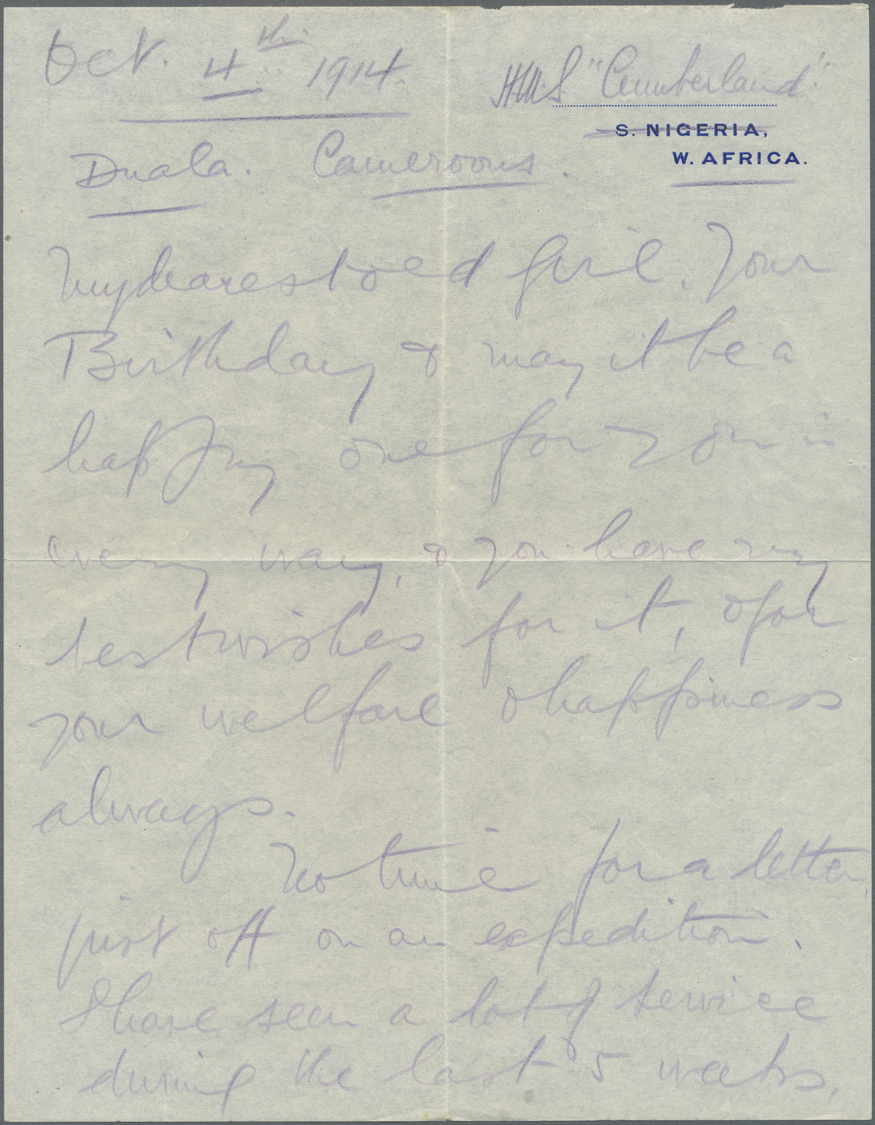 Oct. 4th. 1914.
HMS "Cumberland"
S. NIGERIA,
W. AFRICA.
Duala. Cameroons.
My dearest old girl. Your
Birthday & may it be a
happy one for you in
every way, & you have my
best wishes for it, & for
your welfare & happiness
always.
No time for a letter,
just off on an expedition.
I have seen a lot of service
during the last 5 weeks,